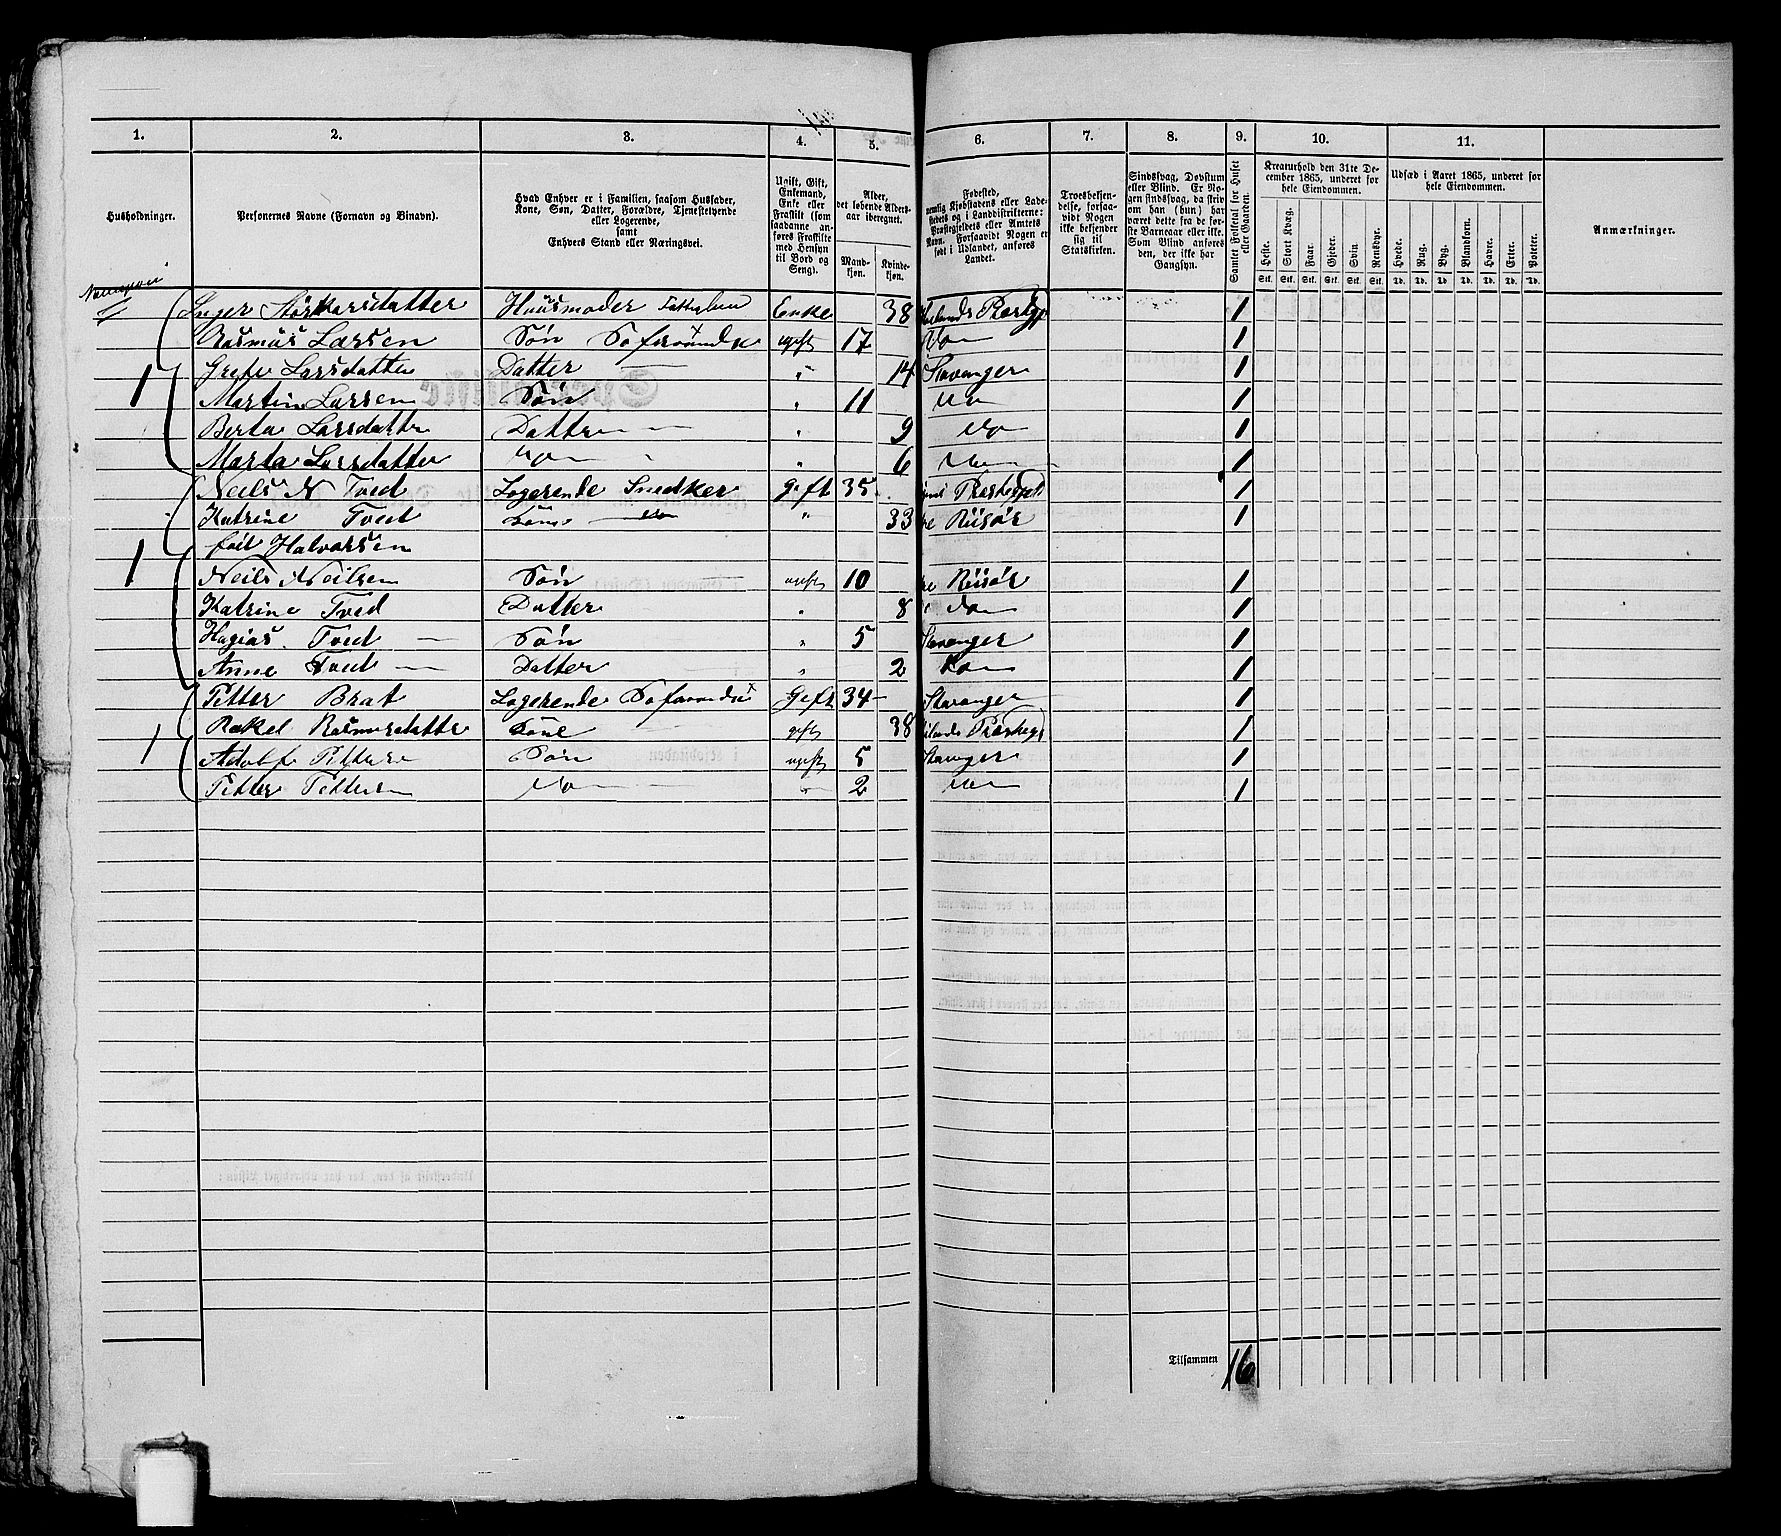 1. 2. 3. 4. 5. 6. 7. 8. 9. 10. 11.
Husholdninger.
Personernes Navne (Fornavn og Binavn).
Hvad Enhver er i Familien, saasom Husfader,
Kone, Søn, Datter, Forældre, Tjenestetyende
eller Logerende,
samt
Enhvers Stand eller Næringsvei.
Ugift, Gift,
Enkemand,
Enke eller
Fraskilt (som
saadanne an-
føres Fraskilte
med Hensyn
til Bord og
Seng).
Alder,
det løbende Alders-
aar iberegnet.
Mand-
kjøn.
Kvinde-
kjøn.
Fødested,
nemlig Kjøbstadens eller Lade-
stedets og i Landdistrikterne:
Præstegjeldets eller Amtets
Navn. Forsaavidt Nogen er
født i Udlandet, anføres
Landet.
Troesbekjen-
delse, forsaa-
vidt Nogen
ikke bekjender
sig til
Statskirken.
Sindssvag, Døvstum
eller Blind. Er No-
gen sindssvag, da skriv
om han (hun) har
været dette fra de før-
ste Barneaar eller ikke.
Som Blind anføres
den, der ikke har
Gangsyn.
Samlet Folketal for Huset
eller Gaarden.
Kreaturhold den 31te De-
cember 1865, underet for
hele Eiendommen.
Heste. Stort Kvæg. Faar. Gjeder. Svin. Rensdyr.
Stk. Stk. Stk. Stk. Stk. Stk.
Udsæd i Aaret 1865, underet for
hele Eiendommen.
Hvede. Rug. Byg. Blandkorn. Havre. Erter. Poteter.
Td. Td. Td. Td. Td. Td. Td.
Anmærkninger.
Inger Husmoder Enke 38 1
Rasmus Larsen Søn ugift 17 Do 1
Grete Larsdatter Datter " 14 Stavanger 1
1 Martin Larsen Søn " 11 Do 1
Berta Larsdatter Datter " 9 Do 1
Marta Larsdatter Do " 6 Do 1
Neils N Tved Logerende Snedker Gift 35 1
Katrine Tved Kone Do " 33 Riisør 1
født Halvorsen
1 Neils Neilsen Søn ugift 10 Riisør 1
Katrine Tved Datter " 8 Do 1
Tved Søn " 5 Stavanger 1
Anne Tved Datter " 2 Do 1
Petter Brat Logerende Gift 34 Stavanger 1
Rakel Rasmusdatter Kone gift 38 1
1 Adolf Pettersen Søn ugift 5 Stavanger 1
Petter Pettersen Do 2 Do 1
Tilsammen 16